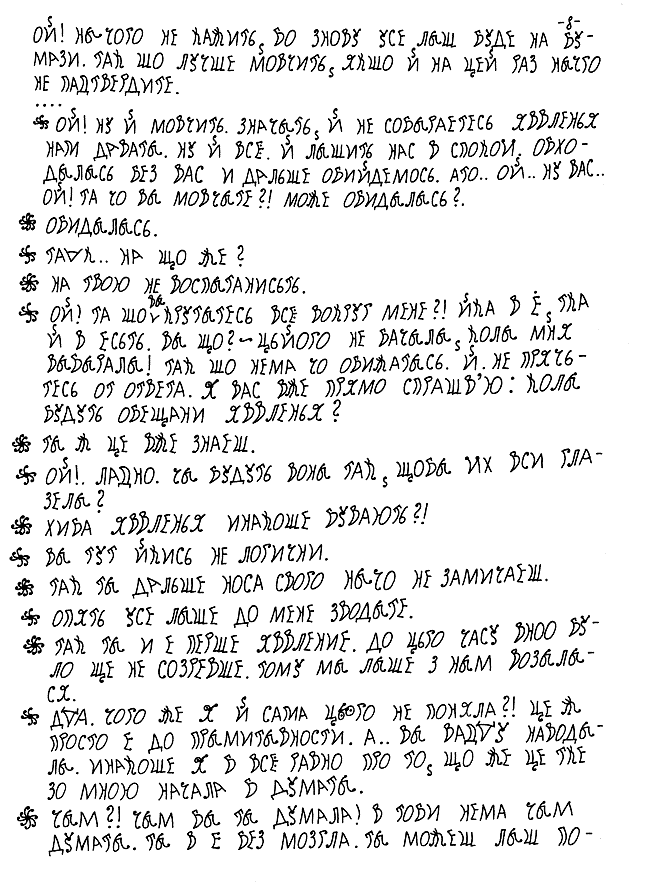 -8-
ОЙ! НИЧОГО НЕ КАЖИТЬ, БО ЗНОВУ УСЕ ЛИШ БУДЕ НА БУ-
МАЗИ. ТАК ШО ЛУЧШЕ МОВЧИТЬ, ЯКШО Й НА ЦЕЙ РАЗ НИЧТО
НЕ ПАДТВЕРДИТЕ.
....
ОЙ! НУ Й МОВЧИТЬ. ЗНАЧИТЬ, Й НЕ СОБИРАЕТЕСЬ ЯВВЛЕНЬЯ
НАМ ДАВАТИ. НУ Й ВСЕ. Й ЛИШИТЬ НАС В СПОКОИ. ОБХО-
ДИЛИСЬ БЕЗ ВАС И ДАЛЬШЕ ОБИЙДЕМОСЬ. АТО.. ОЙ.. НУ ВАС..
ОЙ! ТА ЧО ВИ МОВЧИТЕ?! МОЖЕ ОБИДИЛИСЬ?.
ОБИДИЛИСЬ.
ТАAК.. НА ЩО ЖЕ?
НА ТВОЮ НЕ ВОСПИТАНИСЬТЬ.
ОЙ! ТА ШО ВИ КРУТИТЕСЬ ВСЕ ВОКРУГ МЕНЕ?! ЙКА В Е, ТКА
Й В ЕСЬТЬ. ВИ ЩО? ~ ЦЬЙОГО НЕ БАЧИЛИ, КОЛИ МНЯ
ВИБИРАЛИ! ТАК ШО НЕМА ЧО ОБИЖАТИСЬ. Й. НЕ ПРЯЧЬ-
ТЕСЬ ОТ ОТВЕТА. Я ВАС ВЖЕ ПРЯМО СПРАШВ'Ю: КОЛИ
БУДУТЬ ОБЕЩАНИ ЯВВЛЕНЬЯ?
ТИ Ж ЦЕ ВЖЕ ЗНАЕШ.
ОЙ!. ЛАДНО. ЧИ БУДУТЬ ВОНИ ТАК, ЩОБИ ИХ ВСИ ГЛА-
ЗЕЛИ?
ХИБА ЯВВЛЕНЬЯ ИНАКОШЕ БУВАЮТЬ?!
ВИ ТУТ ЙКИСЬ НЕ ЛОГИЧНИ.
ТАК ТИ ДАЛЬШЕ НОСА СВОГО НИЧО НЕ ЗАМИЧАЕШ.
ОПЯТЬ УСЕ ЛИШЕ ДО МЕНЕ ЗВОДИТЕ.
ТАК ТИ И Е ПЕРШЕ ЯВВЛЕНИЕ. ДО ЦЬГО ЧАСУ ВНОО БУ-
ЛО ЩЕ НЕ СОЗРЕВШЕ. ТОМУ МИ ЛИШЕ З НИМ ВОЗИЛИ-
СЯ.
ДAА. ЧОГО ЖЕ Я Й САМА ЦЬОГО НЕ ПОНЯЛА?! ЦЕ Ж
ПРОСТО Е ДО ПРИМИТИВНОСТИ. А.. ВИ ВИДAУ НАВОДИ-
ЛИ. ИНАКОШЕ Я В ВСЕ РАВНО ПРО ТО, ЩО ЖЕ ЦЕ ТКЕ
ЗО МНОЮ НАЧАЛА В ДУМАТИ.
ЧИМ?! ЧИМ ВИ ТИ ДУМАЛА! В ТОБИ НЕМА ЧИМ
ДУМАТИ. ТИ В Е БЕЗ МОЗГЛА. ТИ МОЖЕШ ЛИШ ПО-